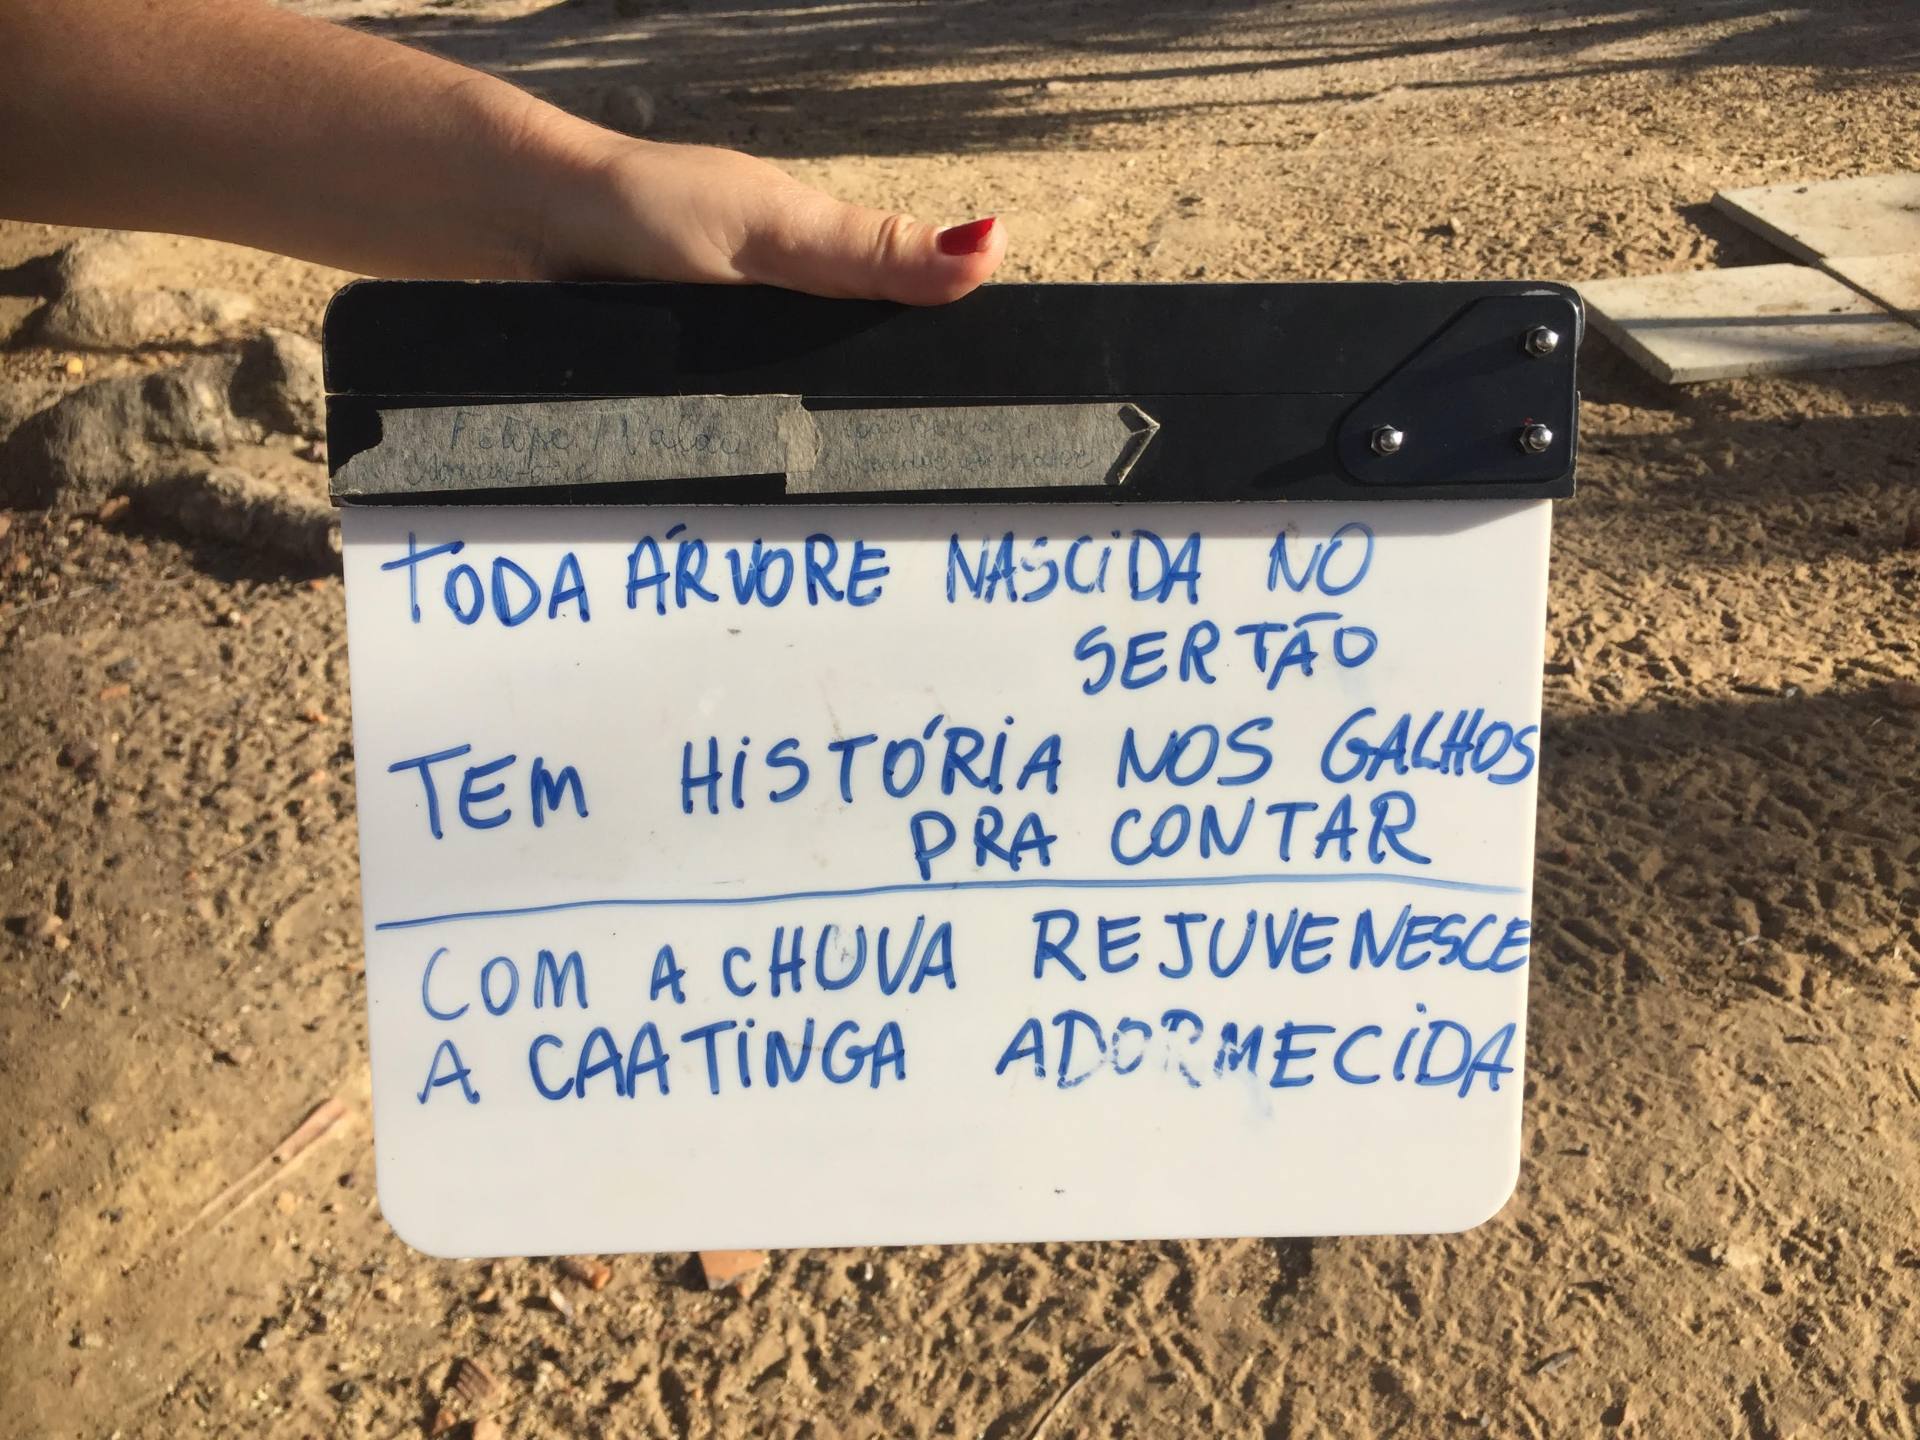 Felipe / Valdo
TODA ÁRVORE NASCIDA NO
SERTÃO
TEM HISTÓRIA NOS GALHOS
PRA CONTAR
COM A CHUVA REJUVENESCE
A CAATINGA ADORMECIDA